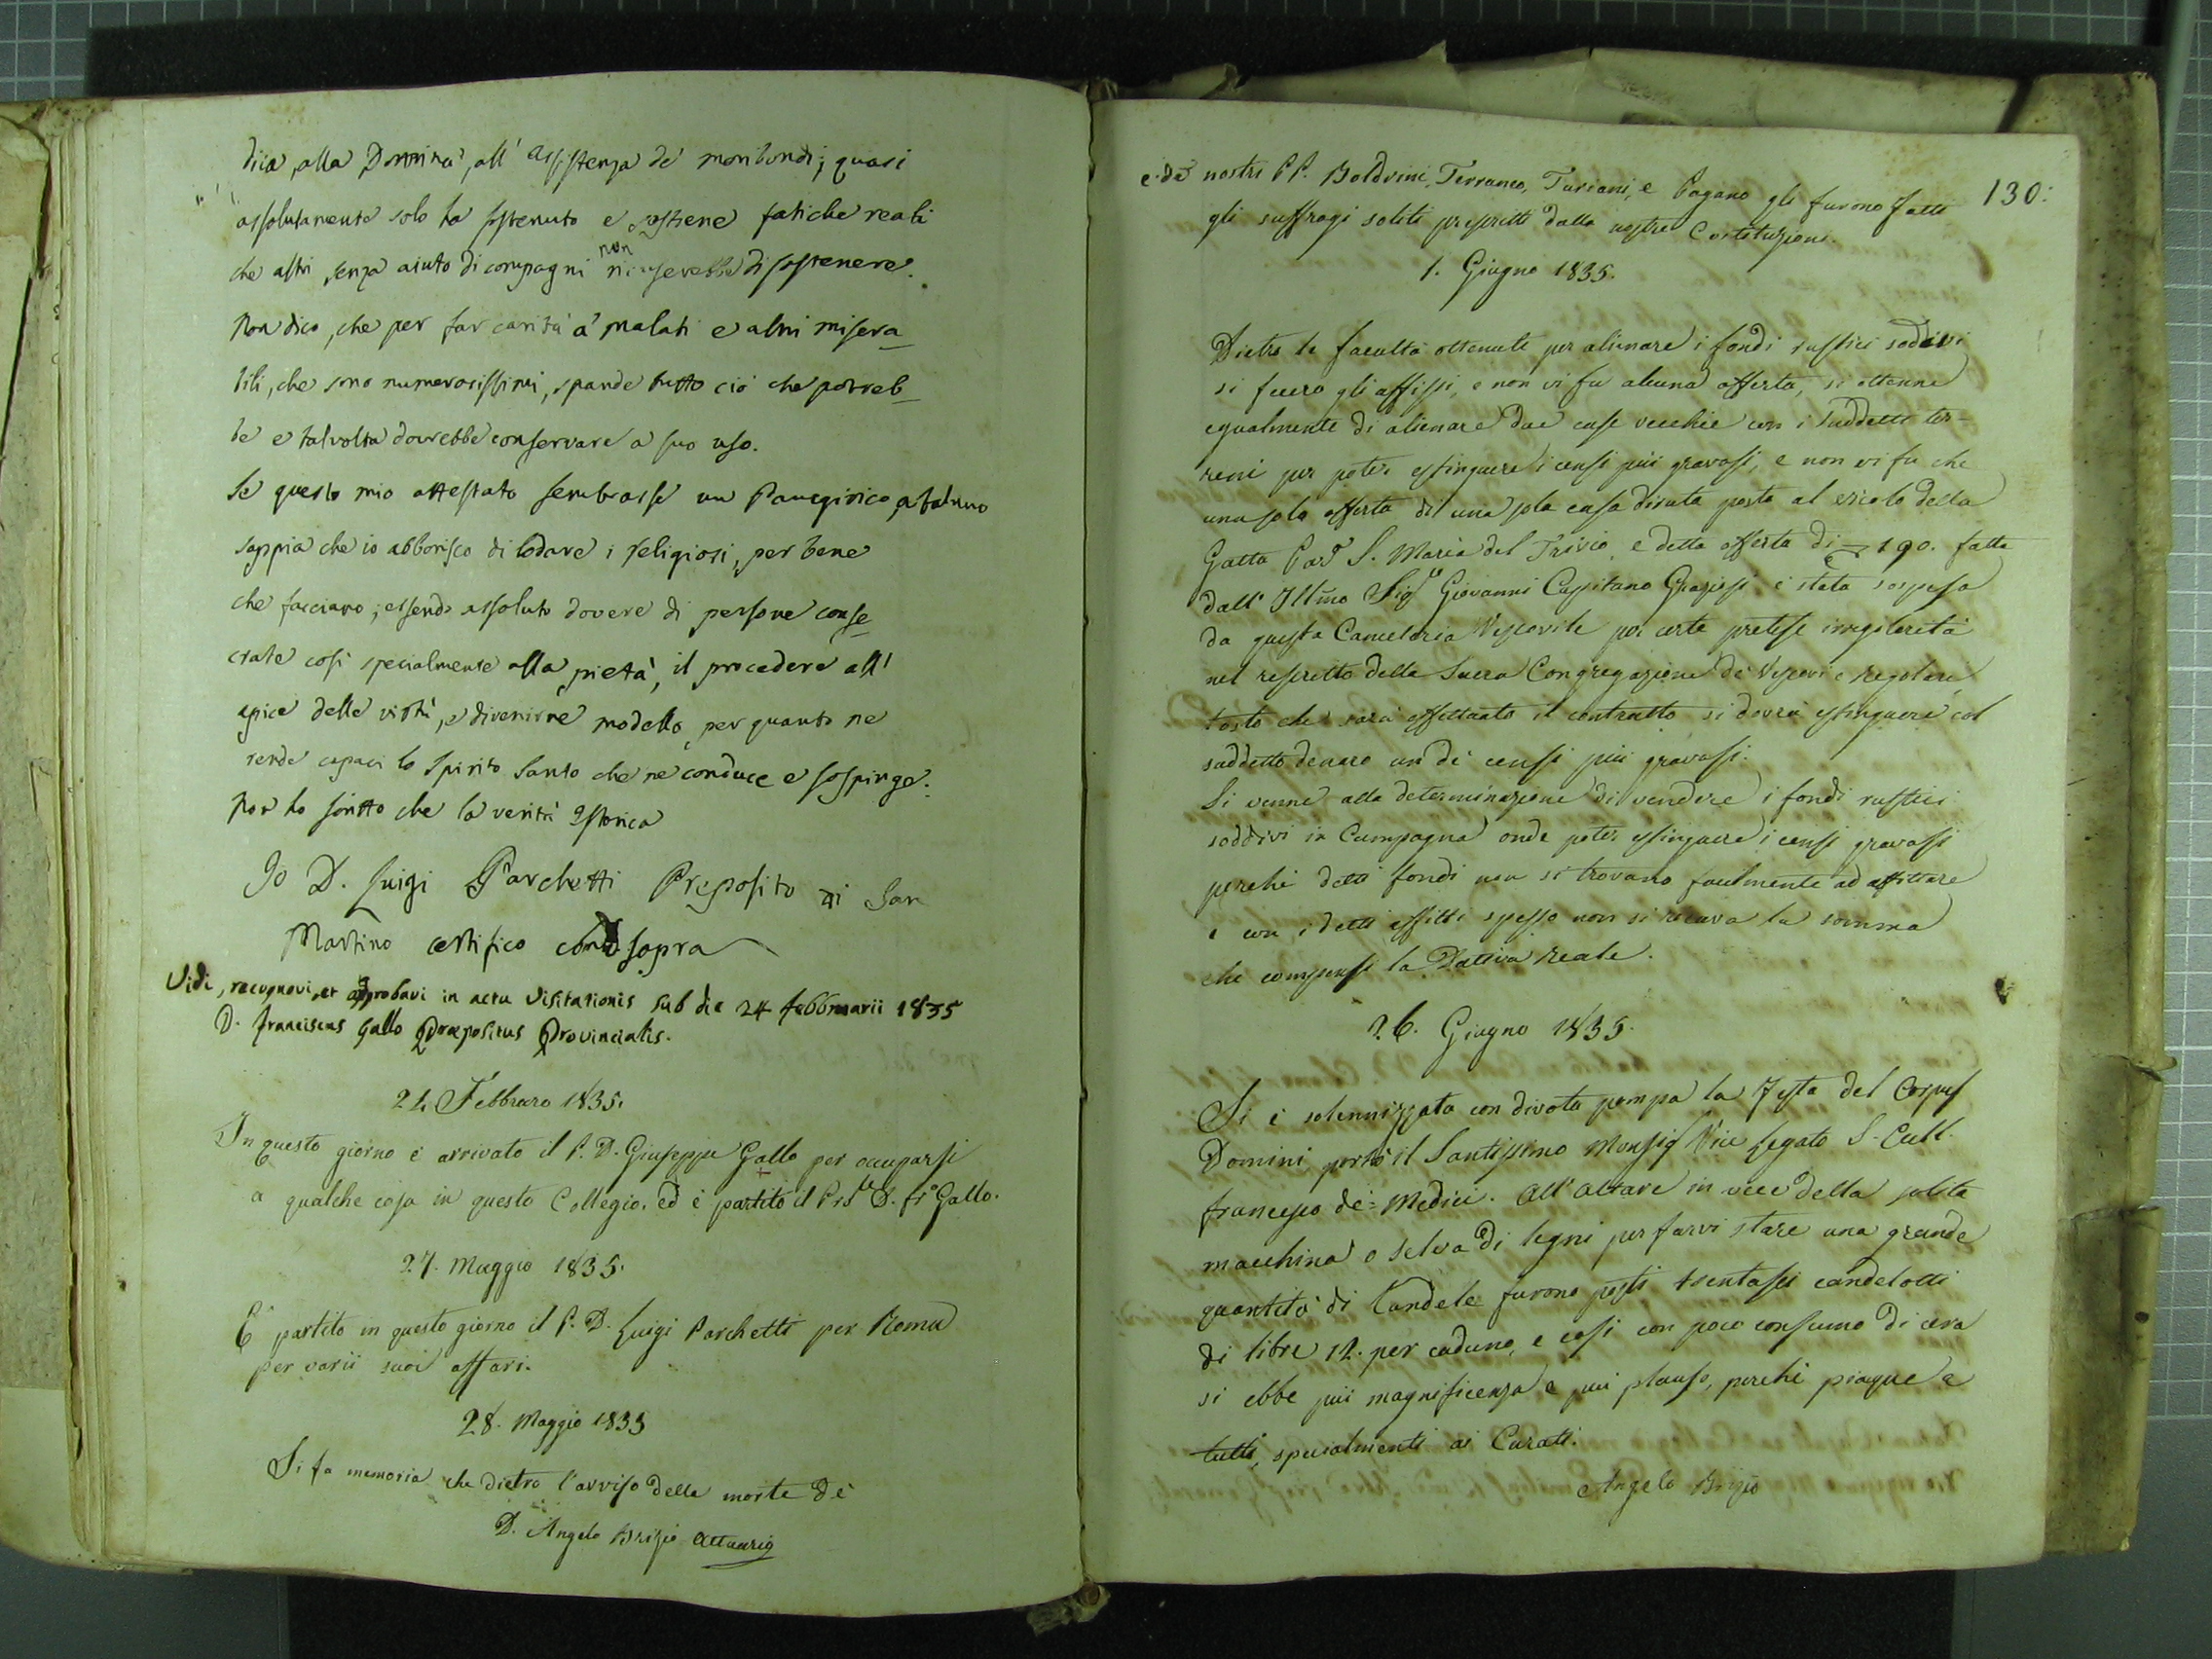 dica, alla Dottrina, all' assistenza de' moribondi; quasi
assolutamente solo ha sostenuto e sostiene fatiche reali
che altri senza aiuto di compagni non ricuserebbe di sostenere.
Non dico, che per far carità a' malati e altri misera_
bili, che sono numerosissimi, spande tutto ciò che potreb_
be e talvolta dovrebbe conservare a suo uso.
Se questo mio attestato sembrasse un Panegirico a taluno
sappia che io abborisco di lodare i religiosi, per bene
che facciano; essendo assoluto dovere di persone conse_
crate così specialmente alla pietà, il procedere all'
apice delle virtù, e divenirne modello, per quanto ne
rende capaci lo Spirito Santo che ne conduce e sospinge.
Non ho scritto che la verità istorica
Io D. Luigi Parchetti Preposito di San
Martino certifico come sopra
Vidi, recognovi, et approbavi in actu Visitationis sub die 24 febbruarii 1835
D. Franciscus Gallo Præpositus Provincialis.
24 Febbraro 1835.
In questo giorno è arrivato il P. D. Giuseppe Gallo per occuparsi
a qualche cosa in questo Collegio. ed è partito il P. D. Fr. Gallo.
27. Maggio 1835.
E' partito in questo giorno il P. D. Luigi Parchetti per Roma
per varii suoi affari.
28. Maggio 1835
Si fa memoria che dietro l'avviso della morte de'
D. Angelo Brizio Attuario
130.
e de' nostri PP. Boldrini, Terraneo, Turiani, e Pagano gli furono fatti
gli suffragi soliti prescritti dalle nostre Costituzioni.
1. Giugno 1835.
Dietro le facoltà ottenute per alienare i fondi rustici soddivi
si fecero gli affissi, e non vi fu alcuna offerta, si ottenne
egualmente di alienare due case vecchie con i suddetti ter-
reni per poter estinguere i censi più gravosi, e non vi fu che
una sola offerta di una sola casa diruta posta al vicolo della
Gatta Par. S. Maria del Trivio, e detta offerta di 190. fatta
dall' Illmo Sigr Giovanni Capitano Graziosi è stata sospesa
da questa Cancelaria Vescovile per certe pretese irregolarità
nel rescritto della Sacra Congregazione de' Vescovi e Regolari
tosto che sarà effettuato il contratto si dovrà estinguere col
suddetto denaro un de' censi più gravosi.
Si venne alla determinazione di vendere i fondi rustici
soddivi in Campagna onde poter estinguere i censi gravosi
perchè detti fondi non si trovano facilmente ad affittare
e con i detti affitti spesso non si ricava la somma
che compensi la Dativa reale.
26. Giugno 1835.
Si è solennizzata con divota pompa la Festa del Corpus
Domini, portò il Santissimo Monsig Vice Legato S. Ecell.
Francesco de' Medici. All' altare in vece della solita
macchina o selva di legni per farvi stare una grande
quantità di Candele furono posti trentasei candelotti
di libre 12. per caduno, e così con poco consumo di cera
si ebbe più magnificenza e più plauso, perchè piaque a
tutti, specialmenti ai Curati.
Angelo Brizio